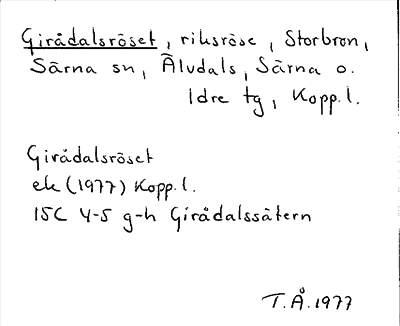 Girådalsröset, riksröse, Storbron,
Särna sn, Älvdals, Särna o.
Idre tg, Kopp. l.
Girådalsröset
ek (1977) Kopp. l.
15C 4-5 g-h Girådalssätern
T.Å. 1977